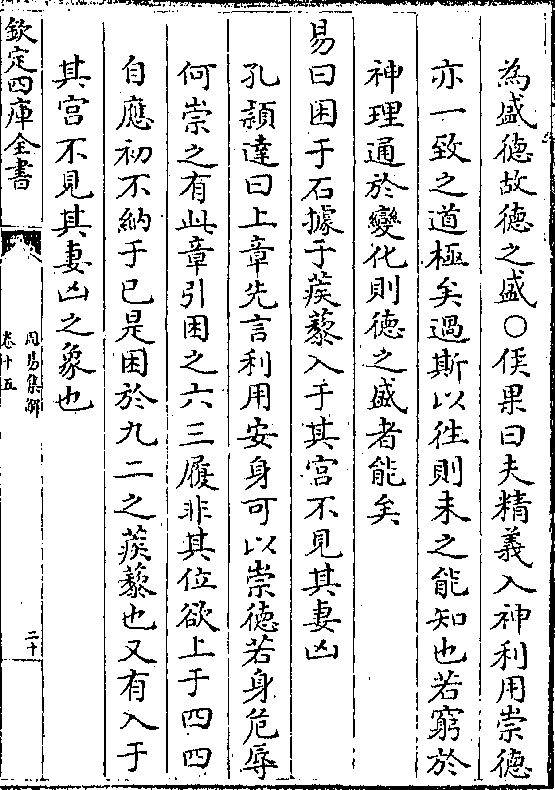 為盛德故德之盛○侯果曰夫精義入神利用崇德
亦一致之道極矣過斯以往則未之能知也若窮於
神理通於變化則德之盛者能矣
易曰困于石據于蒺藜入于其宮不見其妻凶
孔穎達曰上章先言利用安身可以崇德若身危辱
何崇之有此章引困之六三履非其位欲上于四四
自應初不納于已是困於九二之蒺藜也又有入于
其宮不見其妻凶之象也
欽定四庫全書
周易集解
卷十五
二十